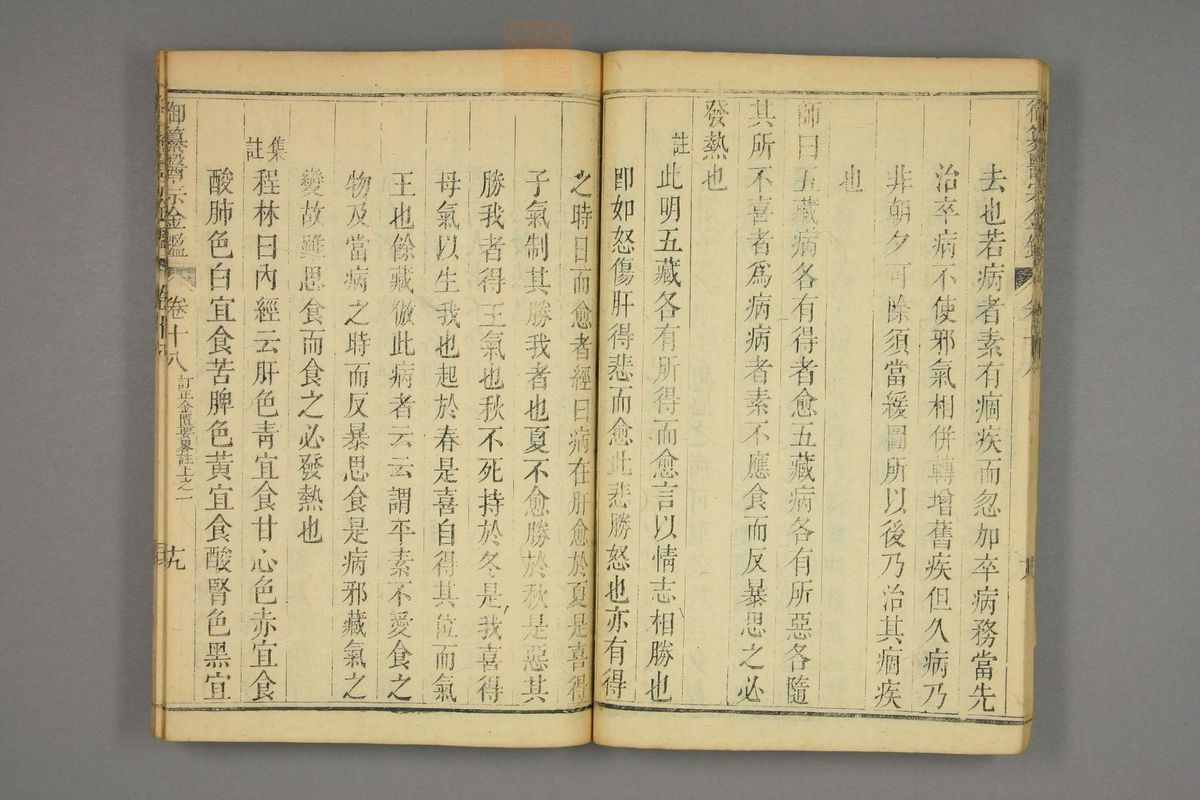 去也若病者素有痼疾而忽加卒病務當先
治卒病不使邪氣相併轉增舊疾但久病乃
非朝夕可除須當緩圖所以後乃治其痼疾
也
師曰五藏病各有得者愈五藏病各有所惡各隨
其所不喜者爲病病者素不應食而反暴思之必
發熱也
註此明五藏各有所得而愈言以情志相勝也
卽如怒傷肝得悲而愈此悲勝怒也亦有得
之時日而愈者經曰病在肝愈於夏是喜得
子氣制其勝我者也夏不愈勝於秋是惡其
勝我者得王氣也秋不死持於冬是我喜得
母氣以生我也起於春是喜自得其位而氣
王也餘藏倣此病者云云謂平素不愛食之
物及當病之時而反暴思食是病邪藏氣之
變故雖思食而食之必發熱也
集註程林曰內經云肝色靑宜食甘心色赤宜食
酸肺色白宜食苦脾色黃宜食酸腎色黑宜
御纂醫宗金鑑
卷十八
訂正金匱要畧註上之一
十九